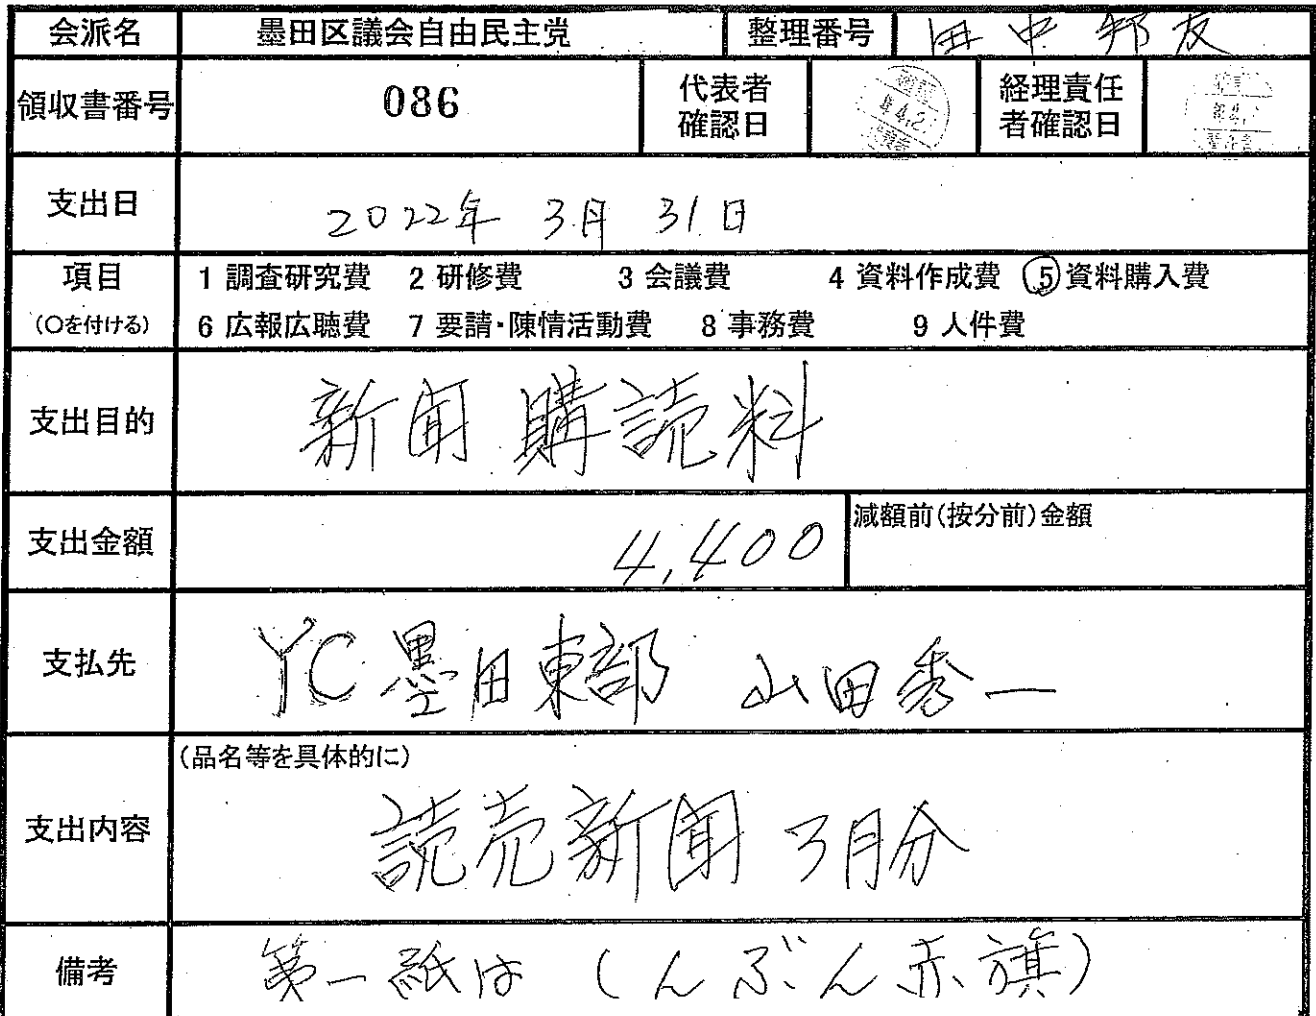 会派名 墨田区議会自由民主党 整理番号 田中邦友
領収書番号 086 代表者確認日 経理責任者確認日
支出日 2022年 3月 31日
項目 1 調査研究費 2 研修費 3 会議費 4 資料作成費 5 資料購入費
(○を付ける) 6 広報広聴費 7 要請・陳情活動費 8 事務費 9 人件費
支出目的 新聞購読料
支出金額 4,400 減額前(按分前)金額
支払先 YC墨田東部 山田秀一
(品名等を具体的に)
支出内容 読売新聞 3月分
備考 第一紙は しんぶん赤旗